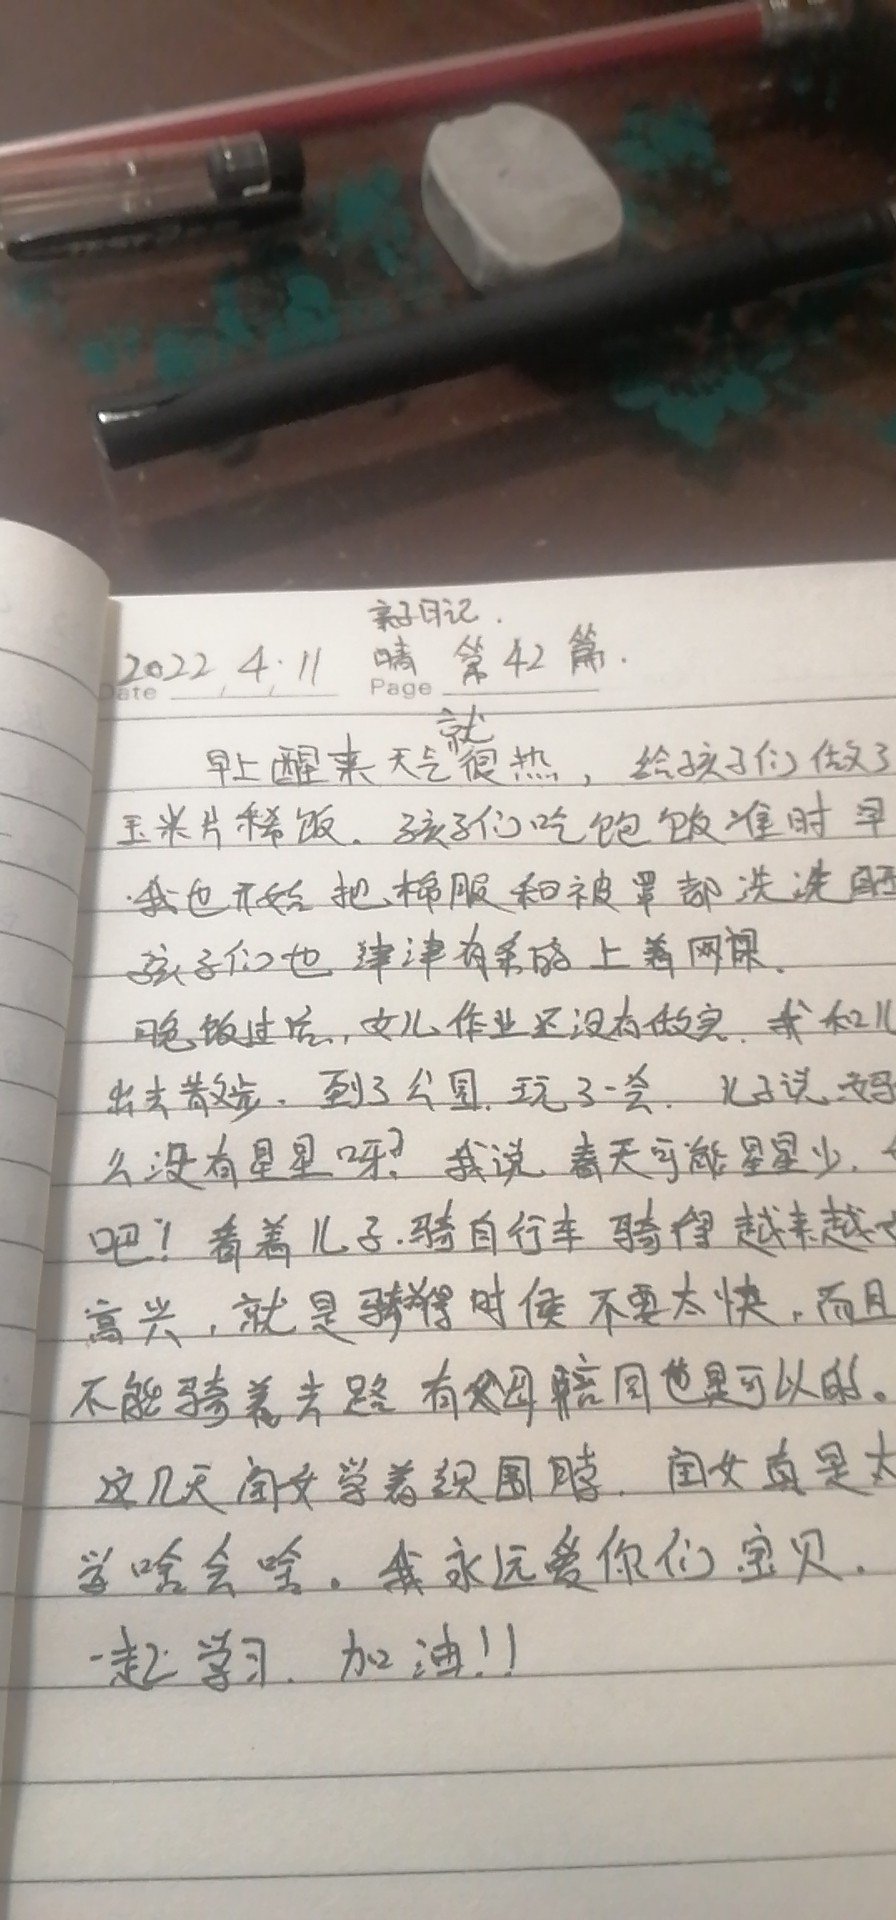 亲子日记.
2022.4.11 晴 第42篇.
Date / / Page
早上醒来天气就很热，给孩子们做了
玉米片稀饭。孩子们吃饱饭准时早
我也开始把棉服和被罩都洗洗晒
孩子们也津津有味的上着网课.
晚饭过后，女儿作业还没有做完.我和儿
出去散步.到了公园.玩了一会.儿子说.妈
么没有星星呀?我说.春天可能星星少.
吧!看着儿子.骑自行车骑得越来越
高兴，就是骑得时候不要太快，而且
不能骑着去路有父母陪同也是可以的。
这几天闺女学着织围脖.闺女真是太
学啥会啥。我永远爱你们宝贝.
一起学习.加油!!